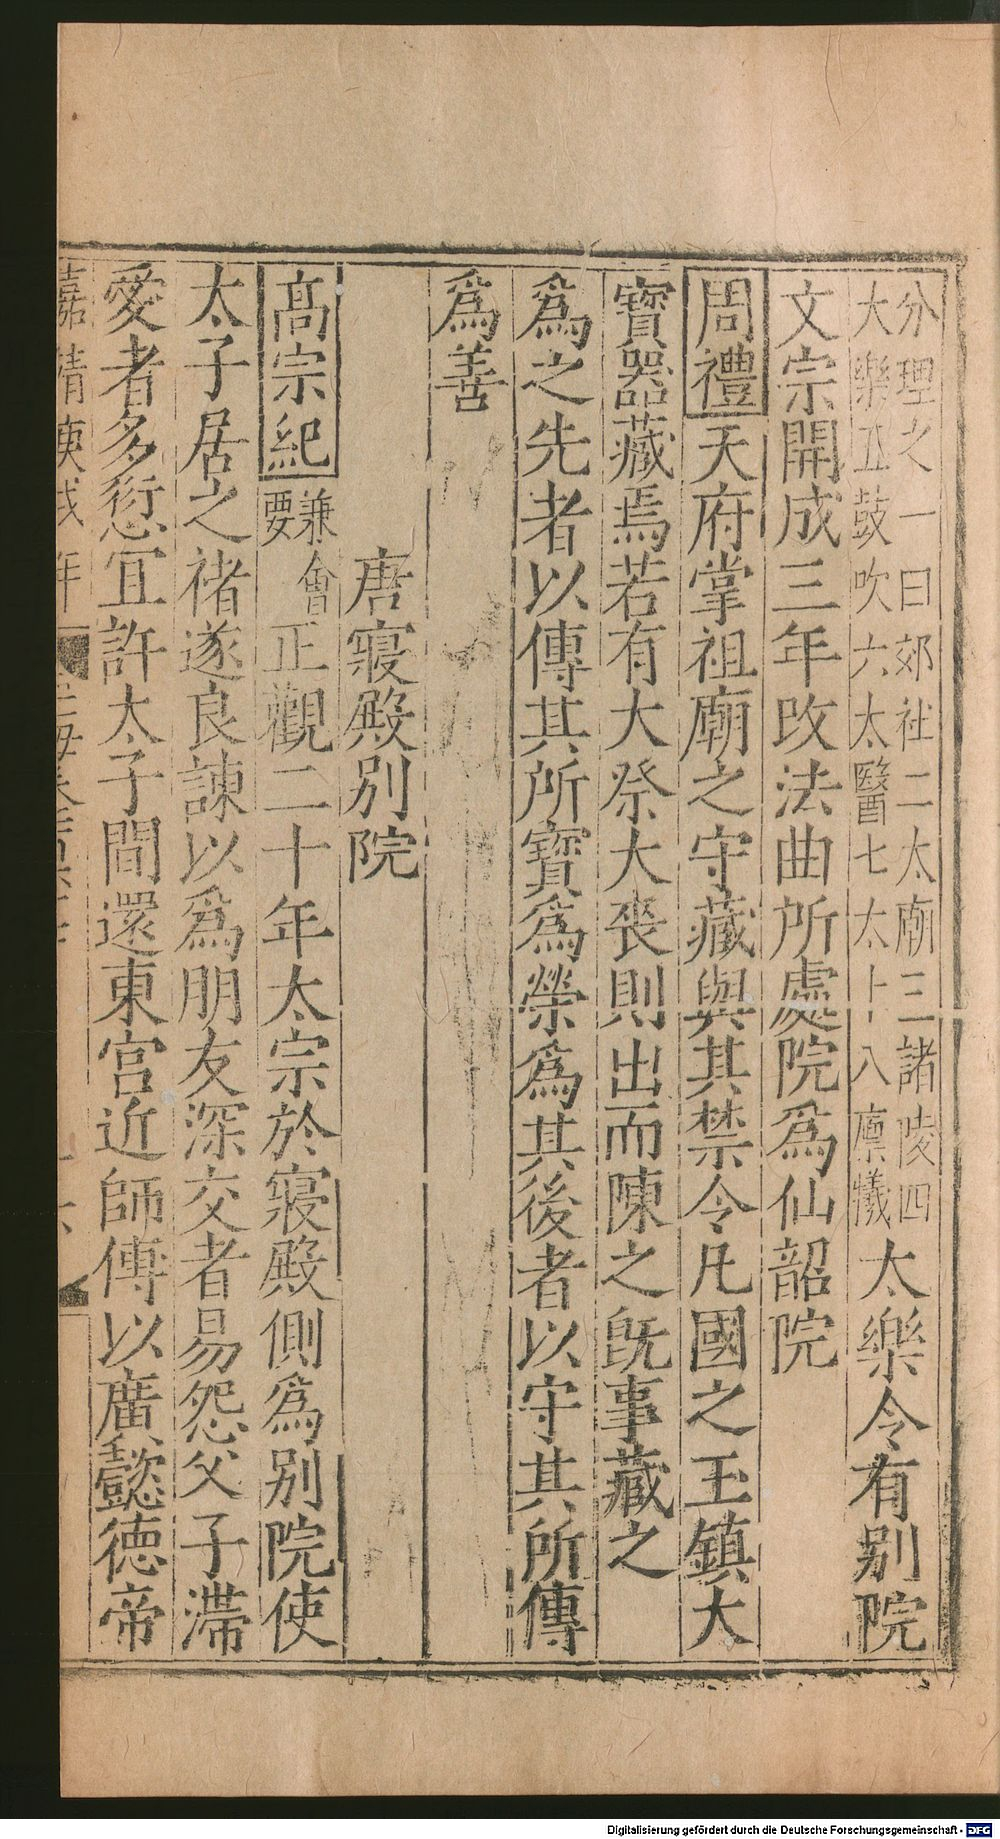 分理之一曰郊社二太廟三諸陵四
大樂五鼓吹六太醫七太卜八廩犧太樂令有别院
文宗開成三年改法曲所處院爲仙韶院
周禮天府掌祖廟之守藏與其禁令凡國之玉鎮大
寶器藏焉若有大祭大喪則出而陳之旣事藏之
爲之先者以傳其所寶爲榮爲其後者以守其所傳
爲善
唐寢殿别院
高宗紀兼會要正觀二十年太宗於寢殿側爲别院使
太子居之褚遂良諫以爲朋友深交者易怨父子滯
愛者多愆宜許太子間還東宫近師傅以廣懿德帝
嘉靖庚戌年
Digitalisierung gefördert durch die Deutsche Forschungsgemeinschaft - DFG